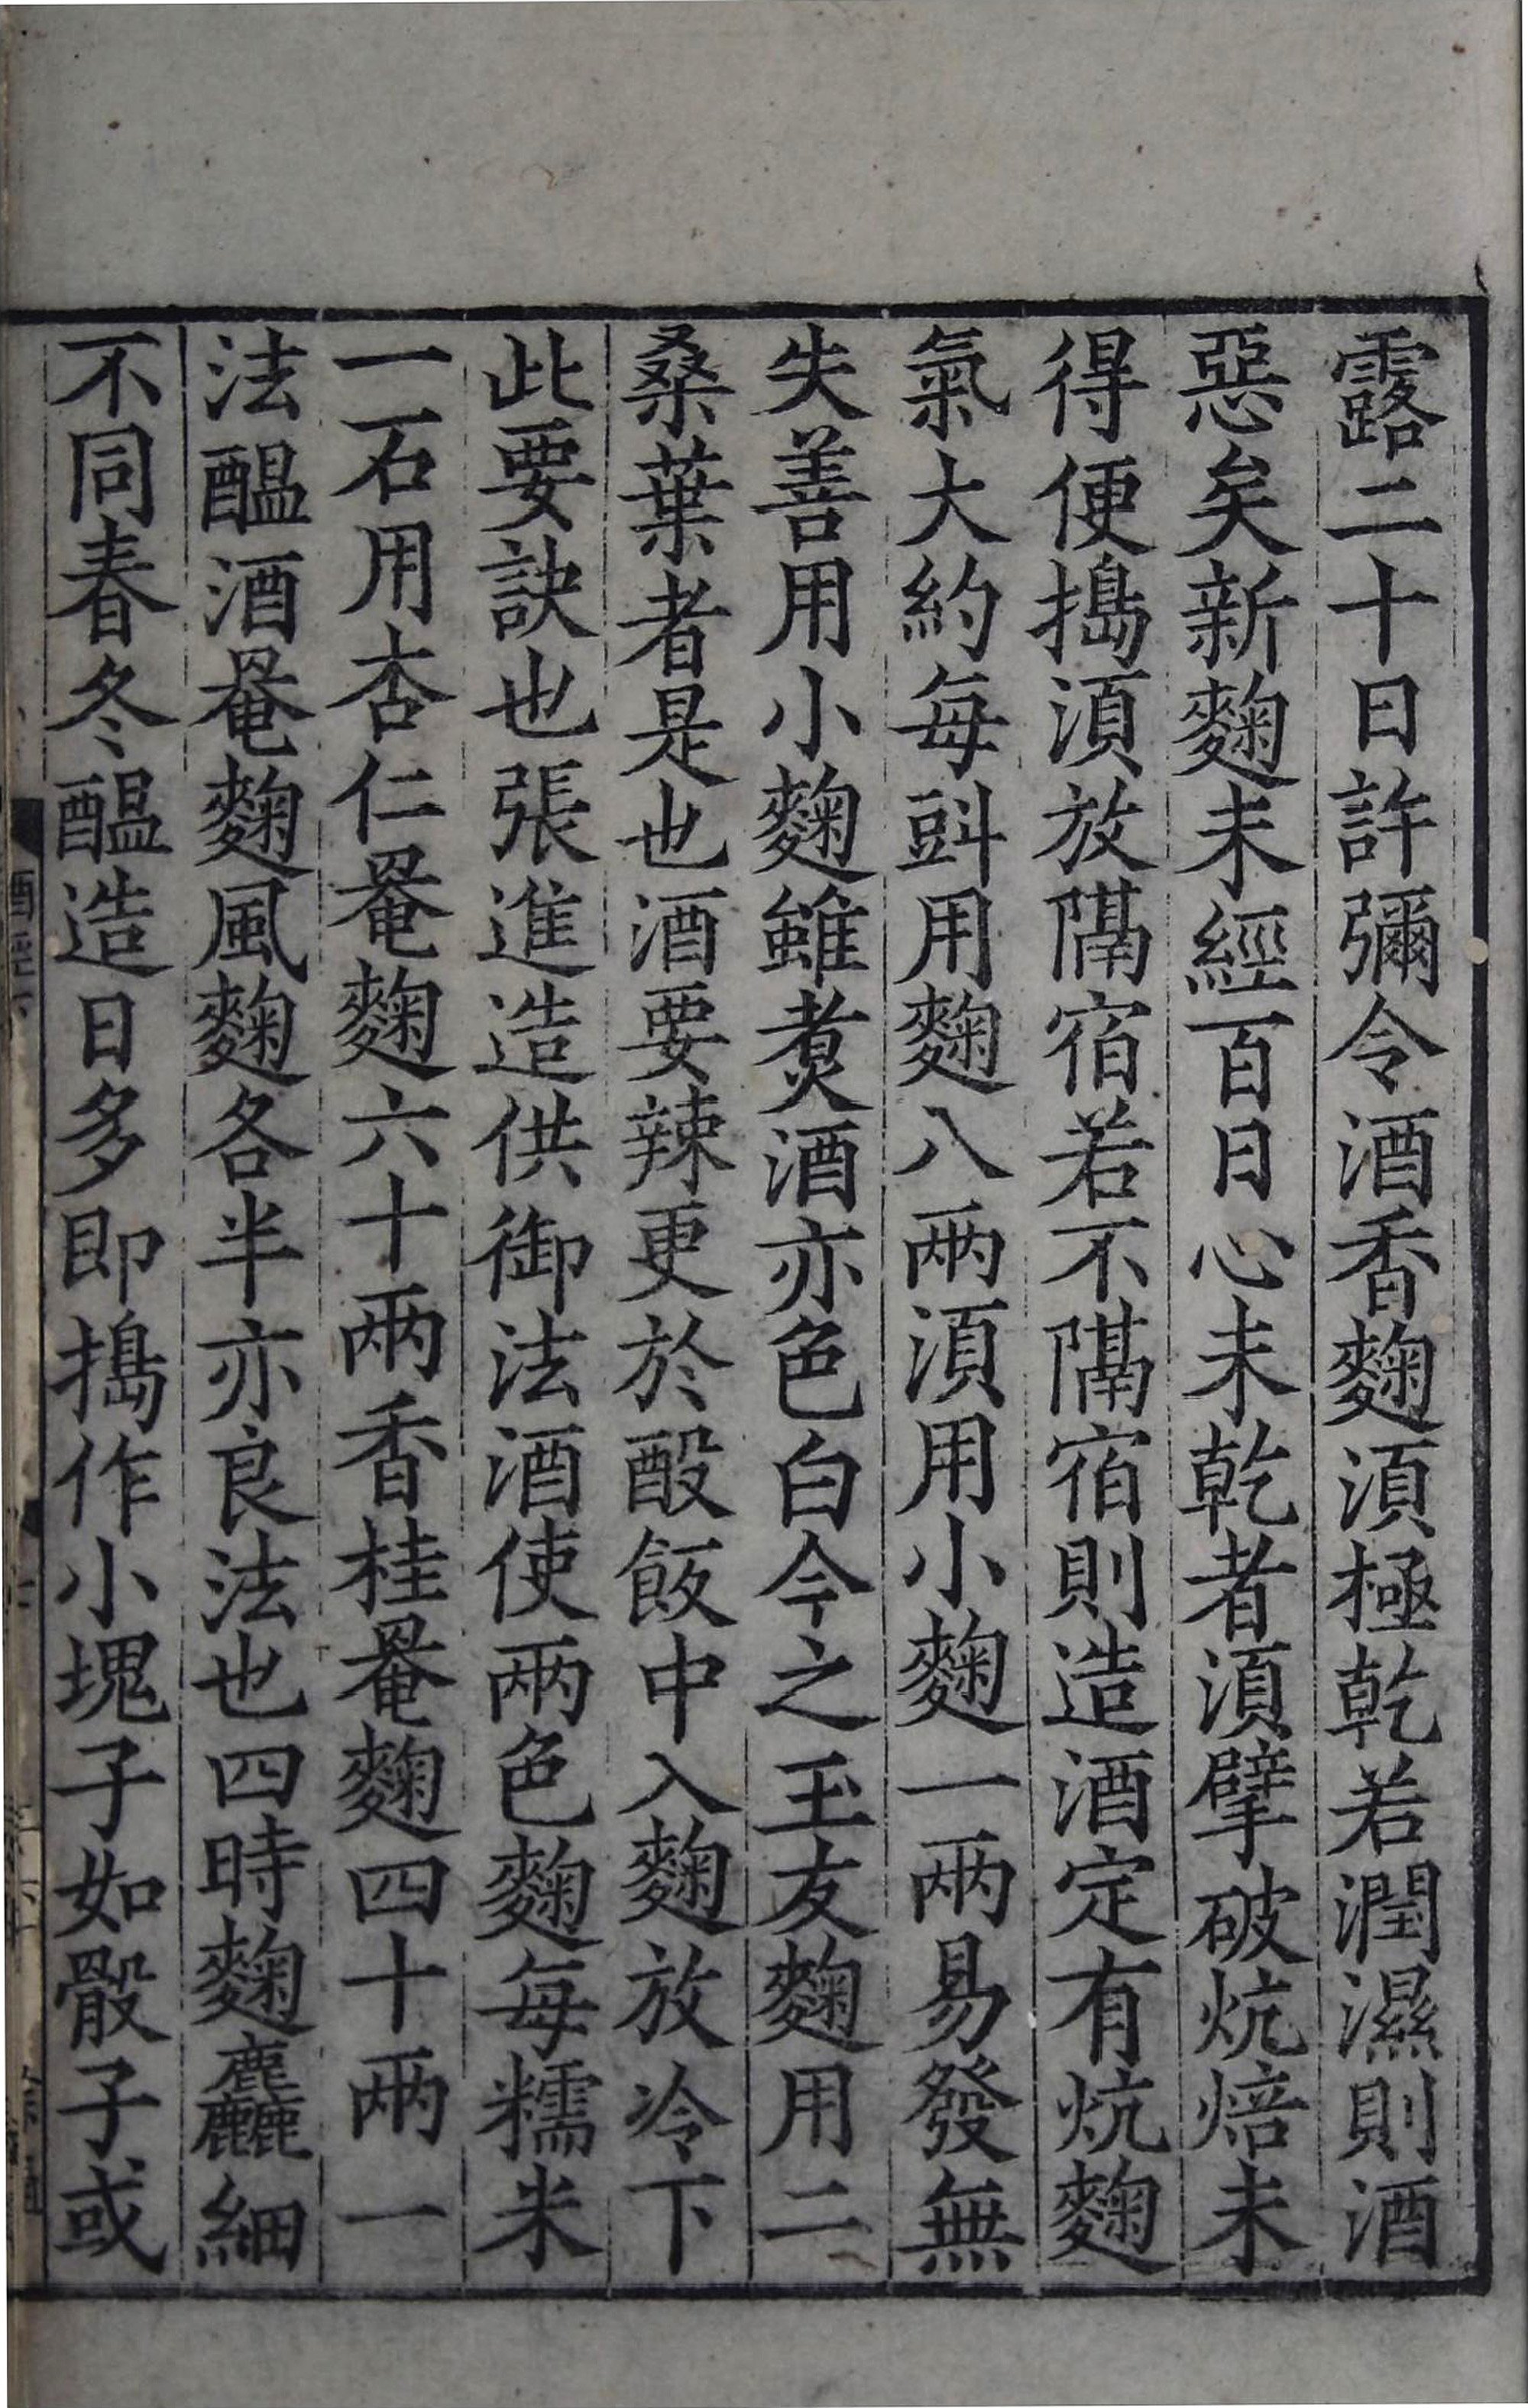 露二十日許彌令酒香麴湏極乾若潤濕則酒
惡矣新麴未經百日心未乾者湏擘破炕焙未
得便搗湏放隔宿若不隔宿則造酒定有炕麴
氣大約每㪷用麴八兩湏用小麴一兩易發無
失善用小麴雖煑酒亦色白今之玉友麴用二
桑葉者是也酒要辣更於酘飯中入麴放冷下
此要訣也張進造供御法酒使兩色麴每糯米
一石用杏仁罨麴六十兩香桂罨麴四十兩一
法醖酒罨麴風麴各半亦良法也四時麴麤細
不同春冬醖造日多即搗作小塊子如骰子或